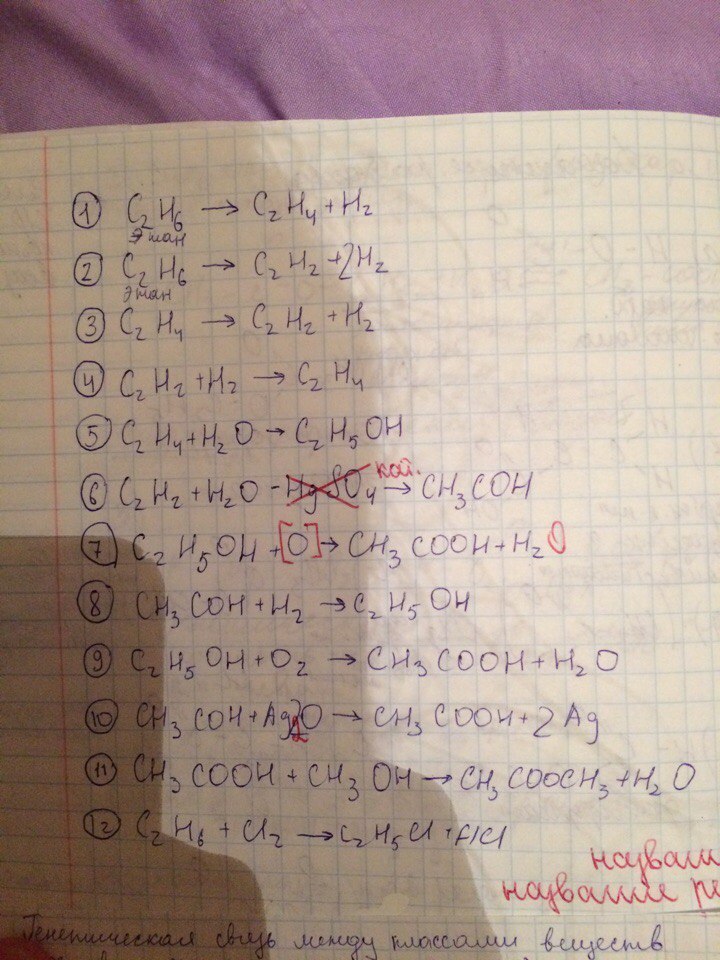 ① C₂H₆ → C₂H₄ + H₂
этан
② C₂H₆ → C₂H₂ + 2H₂
этан
③ C₂H₄ → C₂H₂ + H₂
④ C₂H₂ + H₂ → C₂H₄
⑤ C₂H₄ + H₂O → C₂H₅OH
кат.
⑥ C₂H₂ + H₂O - HgSO₄ → CH₃COH
⑦ C₂H₅OH + [O] → CH₃COOH + H₂O
⑧ CH₃COH + H₂ → C₂H₅OH
⑨ C₂H₅OH + O₂ → CH₃COOH + H₂O
⑩ CH₃COH + Ag₂O → CH₃COOH + 2Ag
⑪ CH₃COOH + CH₃OH → CH₃COOCH₃ + H₂O
⑫ C₂H₆ + Cl₂ → C₂H₅Cl + HCl
названи
название ре
Генетическая связь между классами веществ